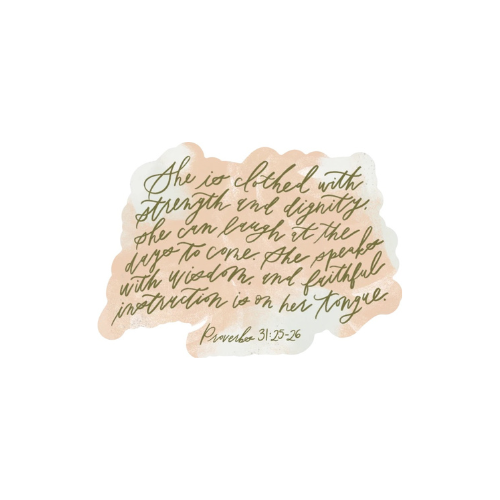 She is clothed with
strength and dignity.
She can laugh at the
days to come. She speaks
with wisdom, and faithful
instruction is on her tongue.
Proverbs 31:25-26